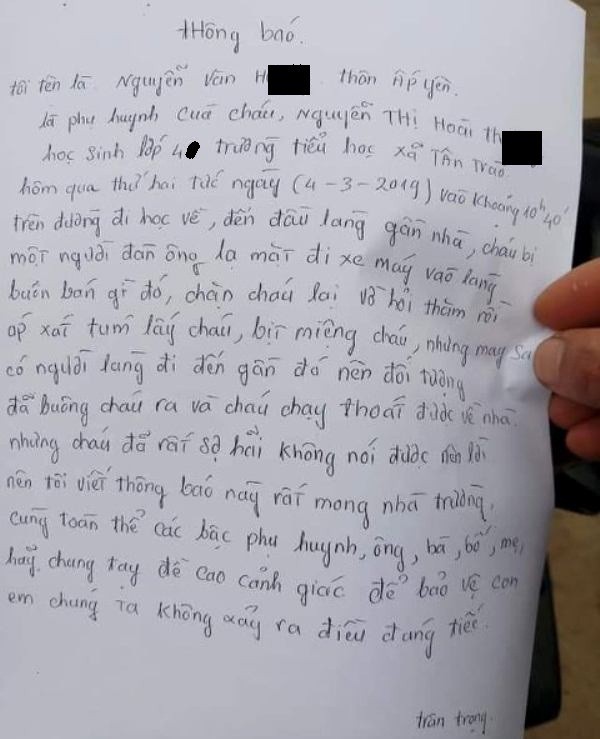 thông báo.
tôi tên là Nguyễn Văn H thôn Ấp yên.
là phụ huynh của cháu, Nguyễn Thị Hoài th
học sinh lớp 4 trường tiểu học xã Tân Trào.
hôm qua thứ hai tức ngày (4-3-2019) vào khoảng 10h40'
trên đường đi học về, đến đầu làng gần nhà, cháu bị
một người đàn ông lạ mặt đi xe máy vào làng
buôn bán gì đó, chặn cháu lại vờ hỏi thăm rồi
áp xát tum lấy cháu, bịt miệng cháu, nhưng may sa
có người làng đi đến gần đó nên đối tượng
đã buông cháu ra và cháu chạy thoát được về nhà.
nhưng cháu đã rất sợ hãi không nói được nên lời
nên tôi viết thông báo này rất mong nhà trường,
cùng toàn thể các bậc phụ huynh, ông, bà, bố, mẹ,
hãy chung tay đề cao cảnh giác để bảo vệ con
em chúng ta không xảy ra điều đáng tiếc.
trân trọng.